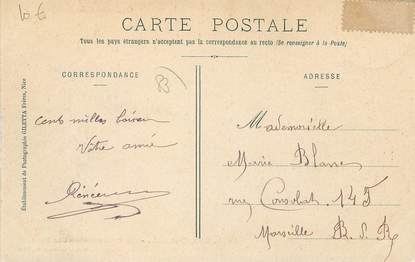 10 €
CARTE POSTALE
Tous les pays étrangers n'acceptent pas la correspondance au recto (Se renseigner à la Poste)
CORRESPONDANCE
B
ADRESSE
Etablissement de Photographie GILETTA Frères, Nice
Cents milles baisers
Votre amie
Renée
Mademoiselle
Marie Blanc
rue Consolat 145
Marseille B. d. R.